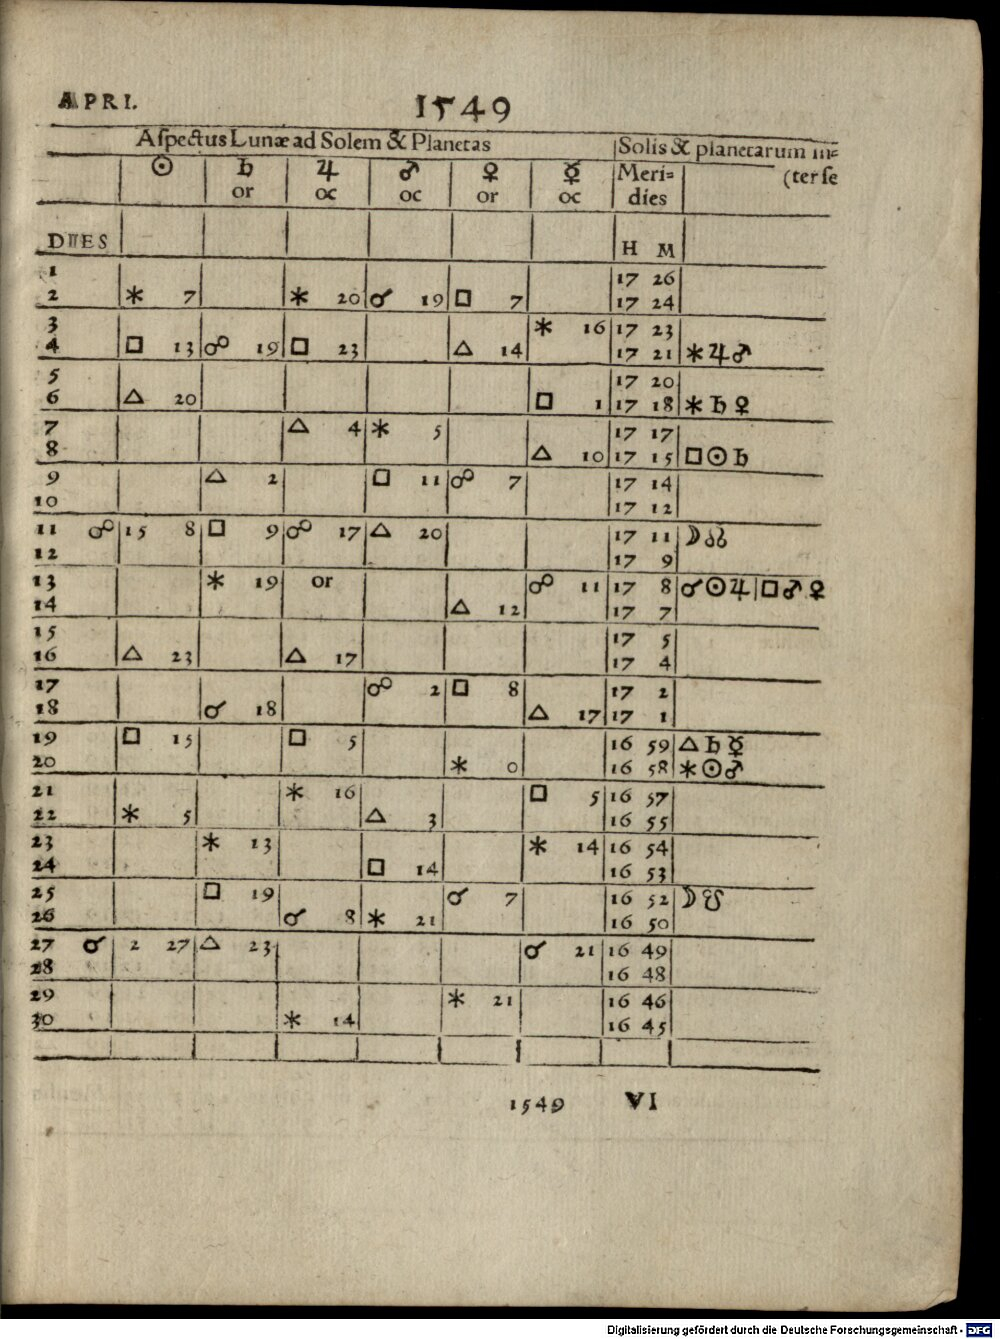 APRI. 1549
Aſpectus Lunæ ad Solem & Planetas Solis & planetarum in=
☉ ♄ ♃ ♂ ♀ ☿ Meri= (ter ſe
or oc oc or oc dies
DIES H M
1 17 26
2 ⚹ 7 ⚹ 20 ☌ 19 □ 7 17 24
3 ⚹ 16 17 23
4 □ 13 ☍ 19 □ 23 △ 14 17 21 ⚹ ♃ ♂
5 17 20
6 △ 20 □ 1 17 18 ⚹ ♄ ♀
7 △ 4 ⚹ 5 17 17
8 △ 10 17 15 □ ☉ ♄
9 △ 2 □ 11 ☍ 7 17 14
10 17 12
11 ☍ 15 8 □ 9 ☍ 17 △ 20 17 11 ☽ ☊
12 17 9
13 ⚹ 19 or ☍ 11 17 8 ☌ ☉ ♃ | □ ♂ ♀
14 △ 12 17 7
15 17 5
16 △ 23 △ 17 17 4
17 ☍ 2 □ 8 17 2
18 ☌ 18 △ 17 17 1
19 □ 15 □ 5 16 59 △ ♄ ☿
20 ⚹ 0 16 58 ⚹ ☉ ♂
21 ⚹ 16 □ 5 16 57
22 ⚹ 5 △ 3 16 55
23 ⚹ 13 ⚹ 14 16 54
24 □ 14 16 53
25 □ 19 ☌ 7 16 52 ☽ ☋
26 ☌ 8 ⚹ 21 16 50
27 ☌ 2 27 △ 23 ☌ 21 16 49
28 16 48
29 ⚹ 21 16 46
30 ⚹ 14 16 45
1549 VI
Digitalisierung gefördert durch die Deutsche Forschungsgemeinschaft - DFG